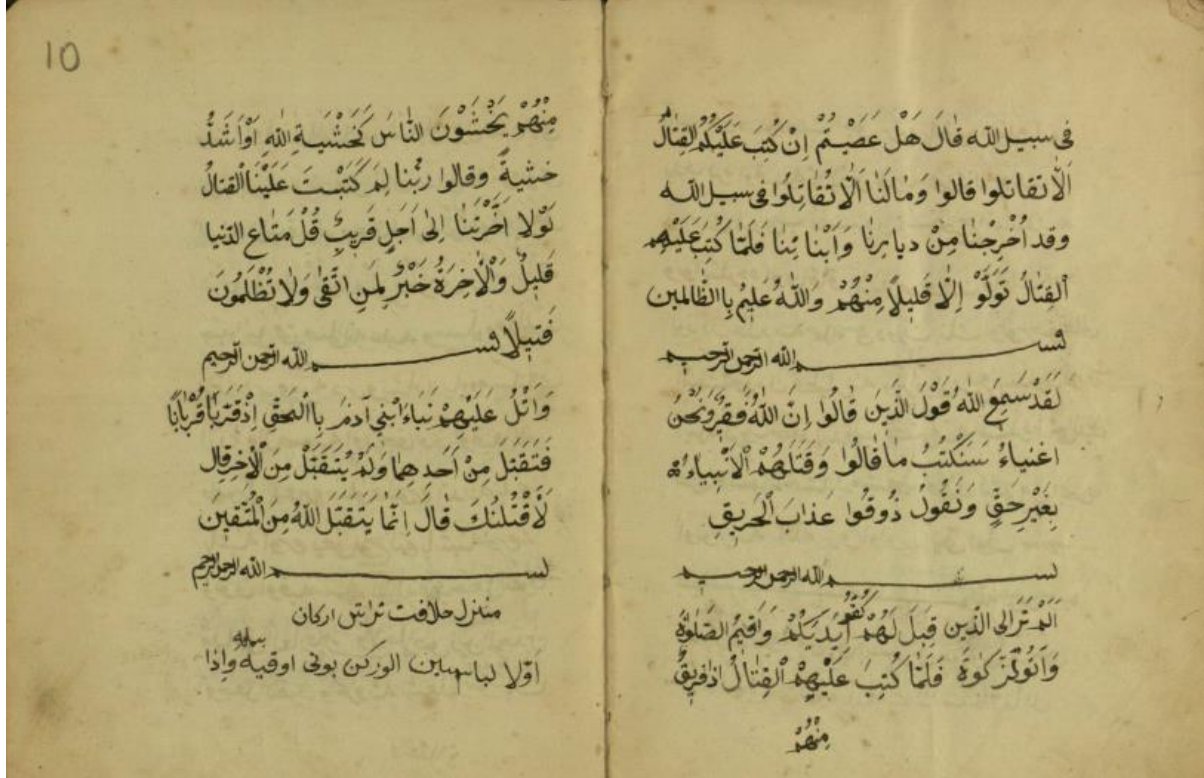 فى سبيل الله قٰالَ هَلْ عَصَيْتُمْ اِنْ كُتِبَ عَلَيْكُمُ القِتٰالُ
اَلّٰا تقاتلوا قالوا وَمٰالَنٰا اَلّٰا تُقٰاتِلُوا فى سبيل الله
وقد اُخْرِجْنٰا مِنْ ديارِنٰا وَاَبْنٰائِنٰا فَلَمّٰا كُتِبَ عَلَيْهِم
اَلقِتٰالُ تَوَلَّوْ اِلّٰا قَليٖلاً مِنْهُمْ وَاللّٰهُ عَليٖمٌ بِاالظّٰالمين
بســـم الله الرّحمن الرّحيم
لَقَدْ سَمِعَ اللّٰهُ قَوْلَ الَّذينَ قٰالُوا اِنَّ اللّٰهَ فَقٖيرٌ وَنَحْنُ
اغنياءُ سَنَكْتُبُ مٰا قٰالُوا وَقَتْلَهُمْ الْاَنْبِيٰاءَ
بِغَيْرِ حَقٍّ وَنَقُولُ ذُوقُوا عَذٰابَ الْحَريٖقِ
بســـم الله الرحمن الرحيم
اَلَمْ تَرَ الى الَّذٖين قٖيلَ لَهُمْ كُفُّو اَيْدِيَكُمْ وَاَقيٖمُ الصَّلٰوةَ
وَاٰتُوالزَّكٰوةَ فَلَمّٰا كُتِبَ عَلَيْهِمْ اَلْقِتٰالُ اِذٰا فَريٖقٌ
مِنْهُمْ
10
مِنْهُمْ يَخْشَوْنَ النّٰاسَ كَخَشْيَةِ اللّٰهِ اَوْ اَشَدُّ
خشيةً وقالوا ربَّنٰا لِمَ كَتَبْتَ عَلَيْنٰا القتالُ
لَوْلا اَخَّرْتَنٰا اِلىٰ اَجَلٍ قَريبٍ قُلْ مَتٰاع الدّنيا
قَليٖلٌ وَاْلاٰخِرَةُ خَيْرٌ لِمَنِ اتَّقىٰ وَلٰا تُظْلَمُونَ
فَتيٖلاً بســـم الله الرّحمن الرّحيم
وَاتْلُ عَلَيْهِمْ نَبٰاءَ ابْنَيْ آدَمَ بِاالْحَقِّ اِذْ قَرَّبٰا قُرْبٰانًا
فَتَقَبَّلَ مِنْ اَحَدِهِمٰا وَلَمْ يُتَقَبَّلْ مِنَ الْاٰخِرِ قال
لَاَقْتُلَنَّكَ قٰالَ اِنَّمٰا يَتَقَبَّلُ اللّٰهُ مِنَ الْمُتَّقيٖنَ
بســـم الله الرحمن الرحيم
منزل خلافت تراش اركان
اوّلا لباس الوركن بونى اوقيه وٓاذا